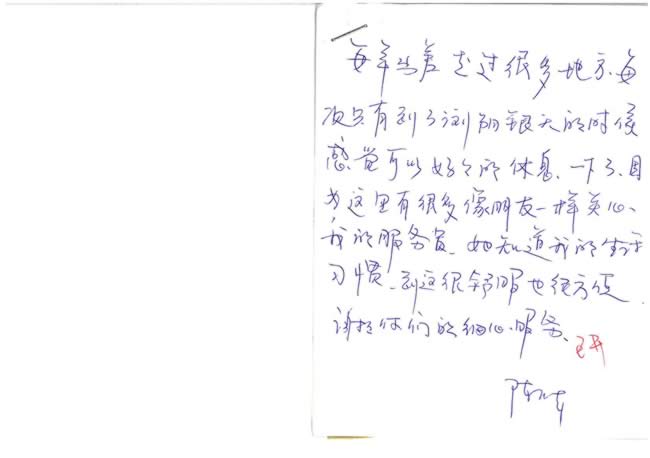 每年出差走过很多地方、每
次只有到了浏阳银天的时候
感觉可以好好的休息、一下了、因
为这里有很多像朋友一样关心、
我的服务员、她知道我的生活
习惯、到这很舒服也很方便
谢谢你们的细心、服务、